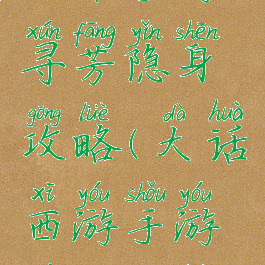 xún fāng yǐn shēn
寻芳隐身
gōng lüè dà huà
攻略(大话
xī yóu shǒu yóu
西游手游